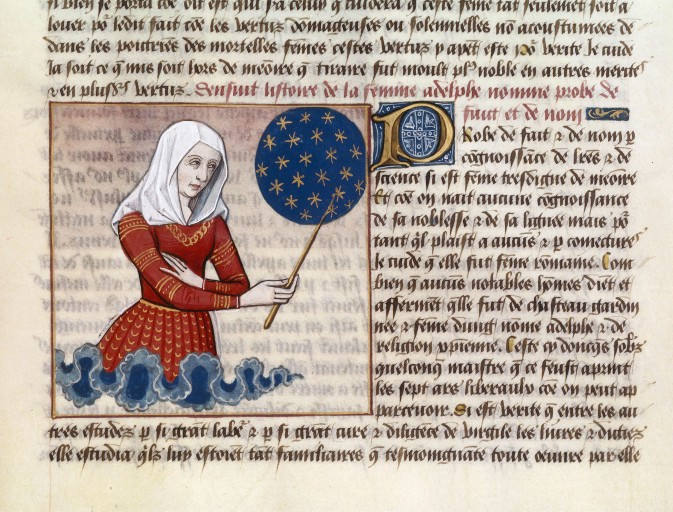 si bien se porta cōe dit est qui sa celuy q̄ cuidera q̄ ceste fēme tāt seulemēt soit a
louer pō ledit fait cōe les vertuz domageuses ou solennelles nō acoustumees de
dans les poictries des mortelles fēmes cestes vertuz y apēt este pō verite Je cuide
la soit ce q̄ mis soit hors de meōire q̄ tiraire fut moult plꝰ noble en autres merites
⁊ en plusʳˢ vertuz. Sensuit listoire de la femme adelphe nomme probe de
fait et de nom
Probe de fait ⁊ de nom p
cōgnoissāce de lres ⁊ de
science si est fēme tresdigne de meōire
Et cōe on nait aucune cōgnoissance
de sa noblesse ⁊ de sa lignee mais pō
tant q̄l plaist a aucūs ⁊ p coniecture
Je cuide q̄ elle fut fēme romaine. Com
bien q̄ aucūs notables hōmes diēt et
affermēt q̄lle fut de chasteau gardin
nee ⁊ fēme dung nōme adelphe ⁊ de
religion xp̄ienne. Ceste cy doncq̄s soubz
quelconq̄ maistre q̄ ce feust aprint
les sept ars liberaulx cōe on peut ap
parcevoir. Si est verite q̄ entre les au
tres estudes p si grāt labeʳ ⁊ p si grāt cure ⁊ diligēce de virgile les livres ⁊ dictiez
elle estudia q̄lz luy estoiēt tāt familiaires q̄ tesmoingnāte toute oeuvre par elle